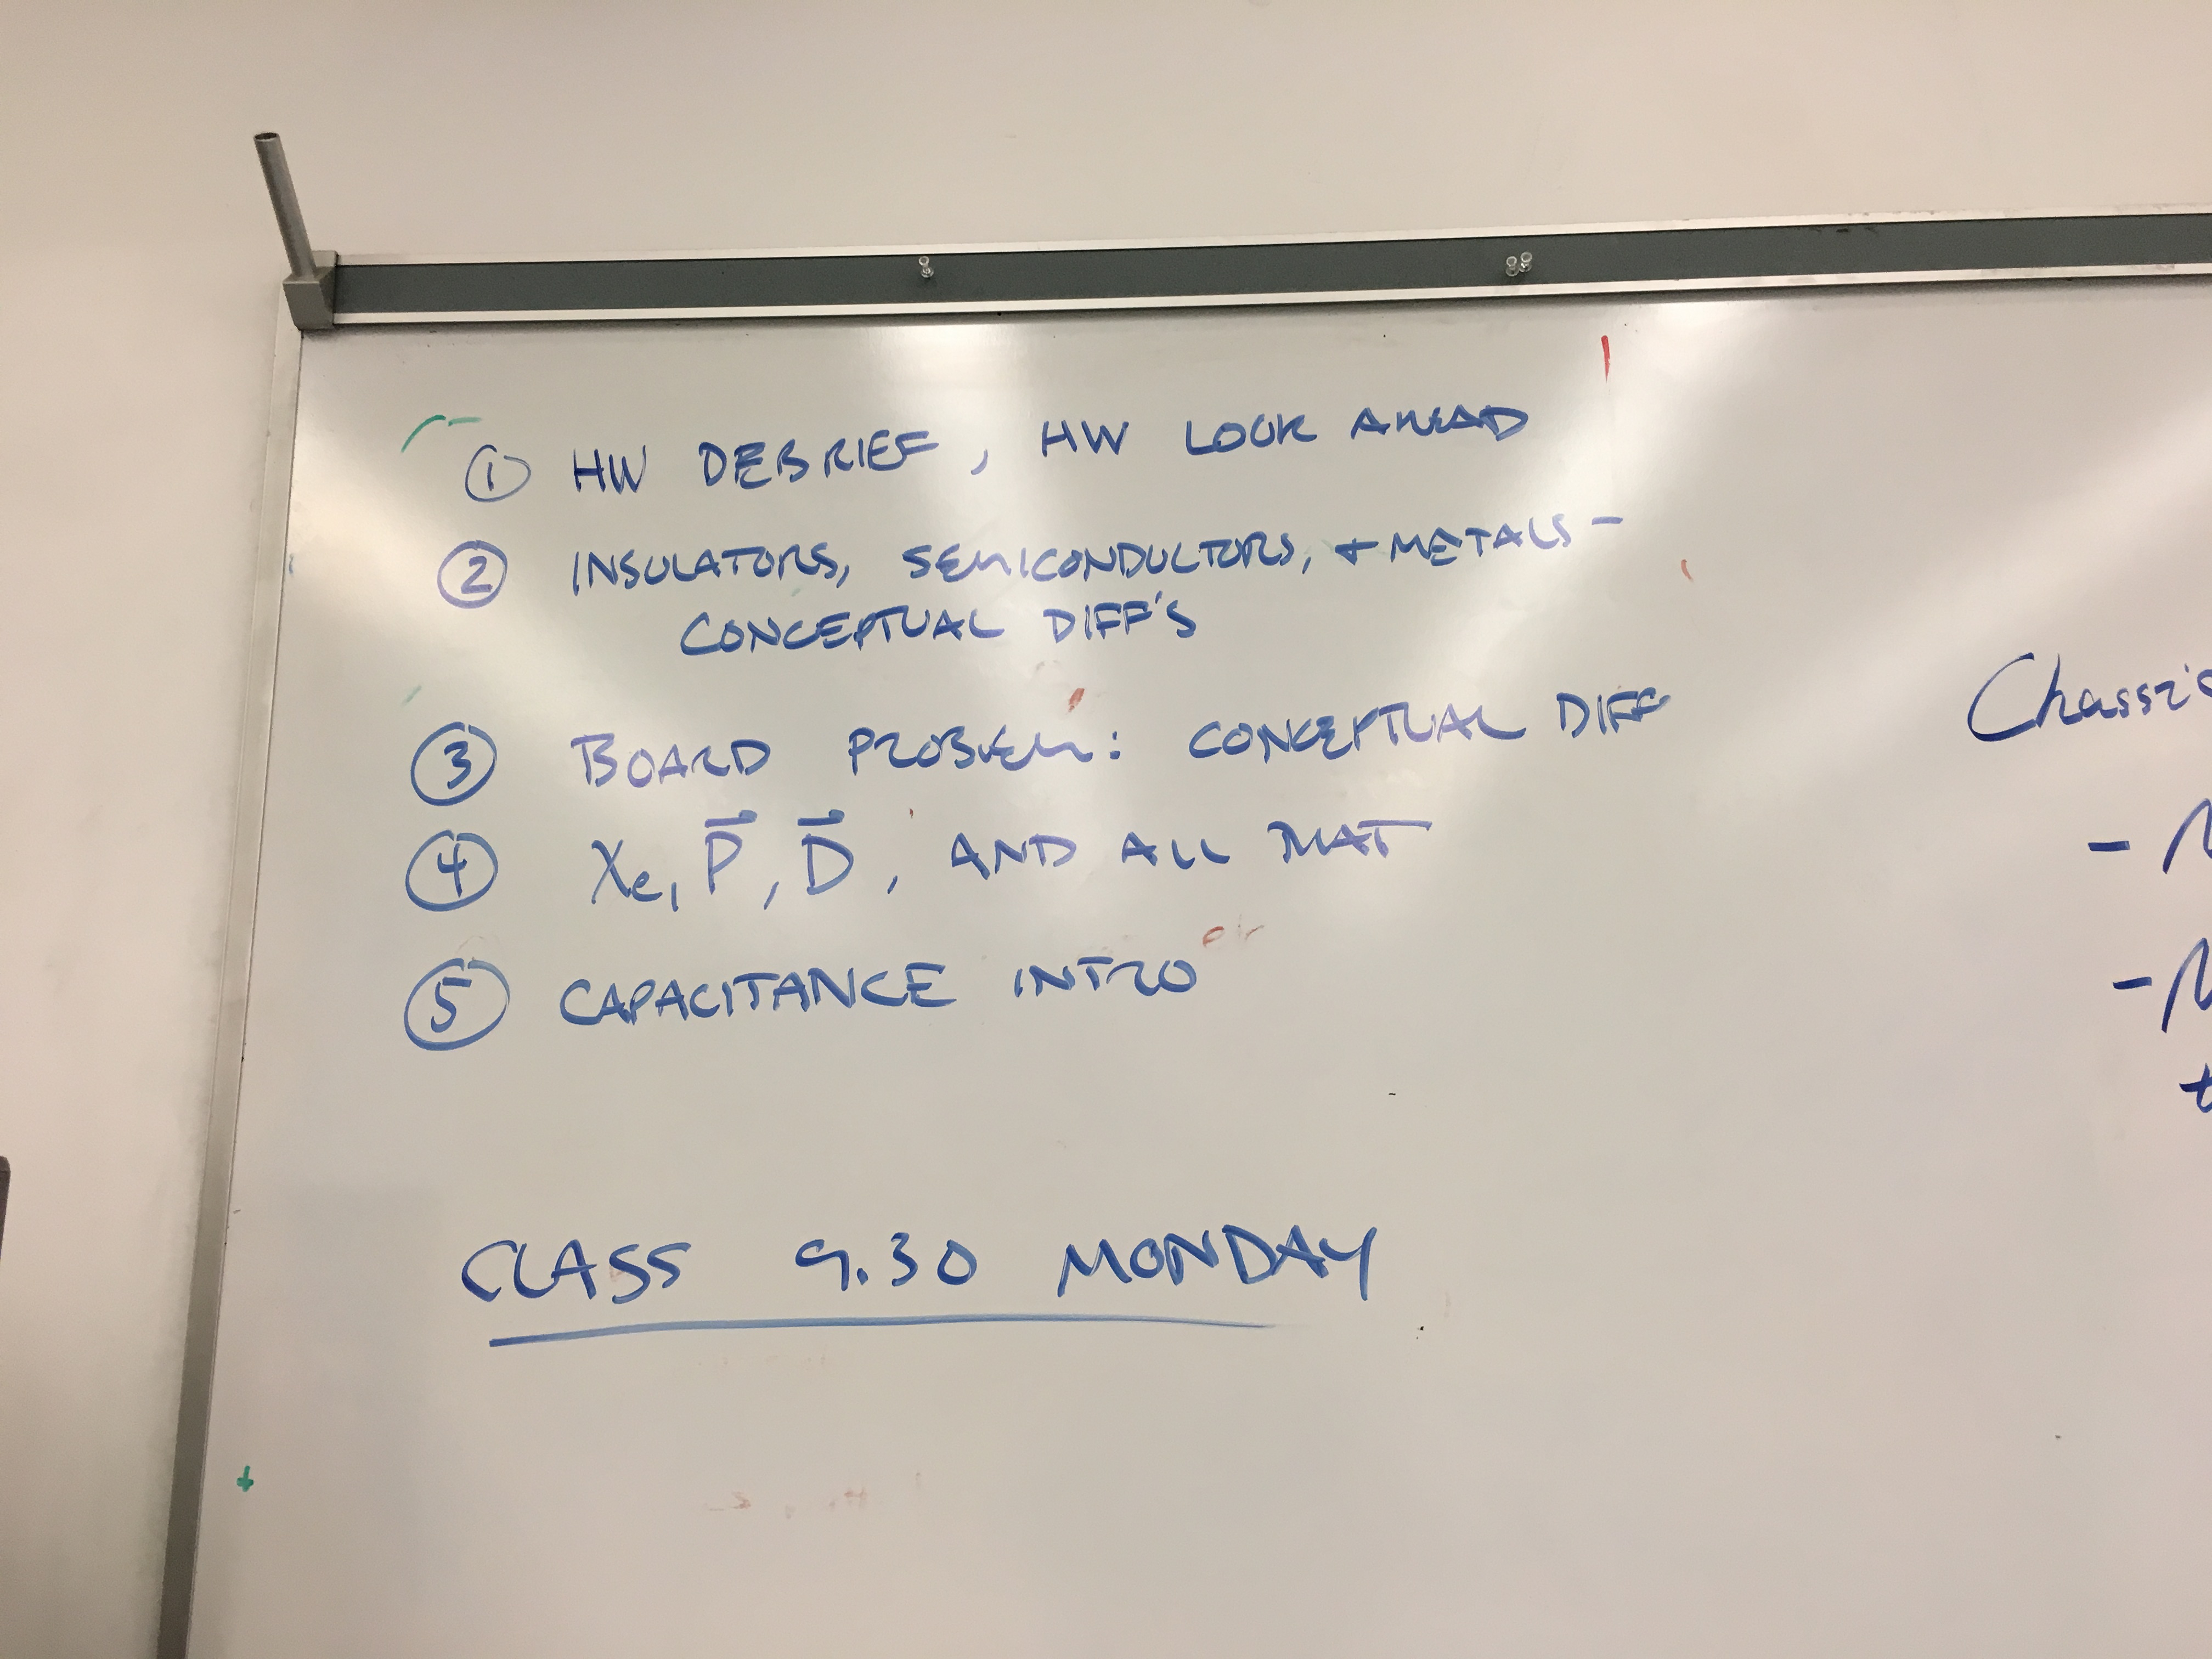 ① HW DEBRIEF, HW LOOK AHEAD
② INSULATORS, SEMICONDUCTORS, + METALS -
CONCEPTUAL DIFF'S
③ BOARD PROBLEM: CONCEPTUAL DIFF
④ χe, P⃗, D⃗, AND ALL THAT
⑤ CAPACITANCE INTRO
CLASS 9.30 MONDAY
Chassis
-
-